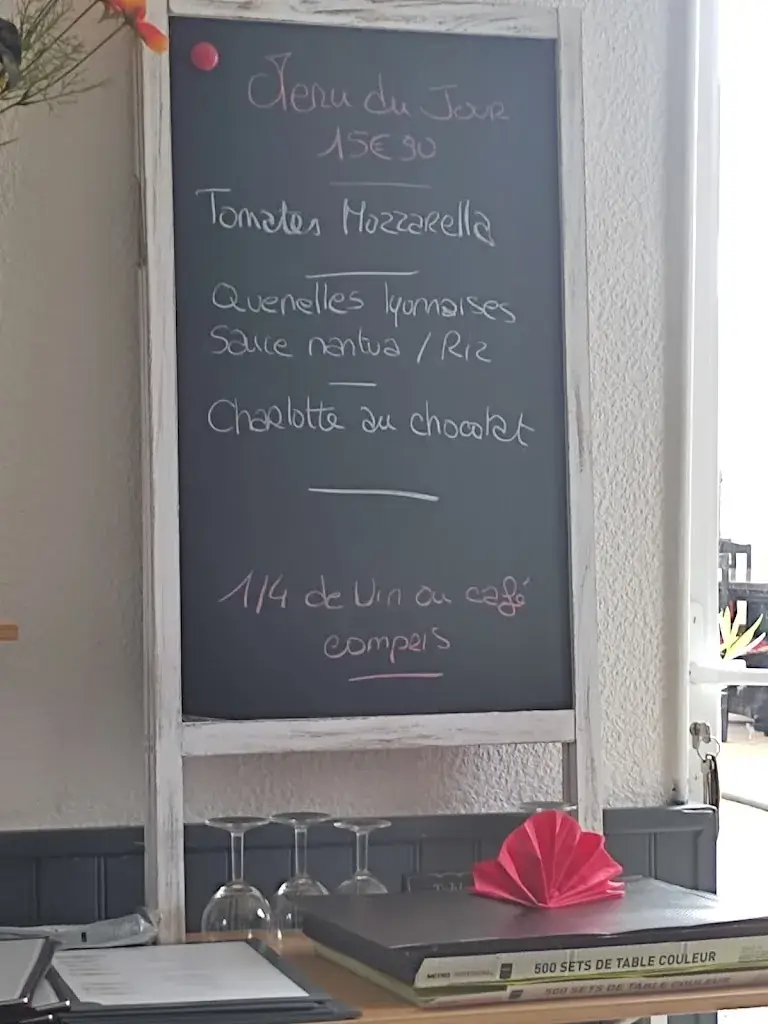 Menu du Jour
15€90
Tomates Mozzarella
Quenelles lyonnaises
Sauce nantua / Riz
Charlotte au chocolat
1/4 de Vin ou café
compris
500 SETS DE TABLE COULEUR
500 SETS DE TABLE COULEUR